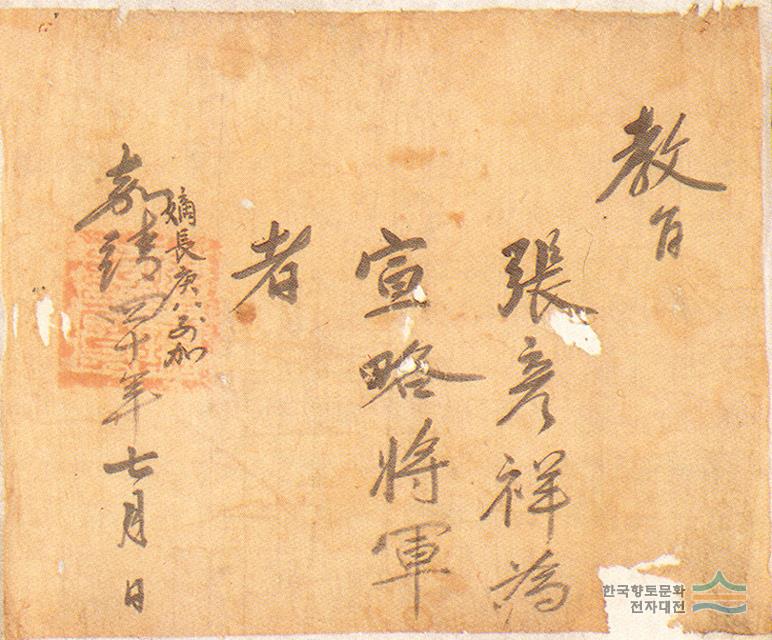 教旨
張彦祥爲
宣略將軍
者
嘉靖四十年七月 日
嫡長庚八別加
한국향토문화
전자대전